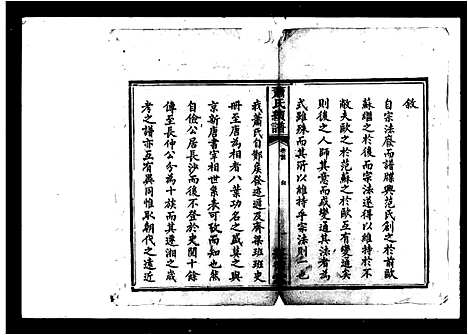 敘
自宗法廢而譜牒興范氏創之於前歐
蘇繼之於後而宗法遂得以維持於不
敝夫歐之於范蘇之於歐互有變通矣
則後之人師其意而或變通其法為其
式雖殊而其所以維持乎宗法則一也
蕭氏續譜
卷首
我蕭氏自酇侯發迹遞及齊梁班班史
冊至唐為相者八葉功名之盛莫之與
京新唐書宰相世系表可攷而知也然
自儉公居長沙而後不登於史閱十餘
傳至長仲公分為十族而其遷湘之歲
考之譜亦互有異同惟取朝代之遠近